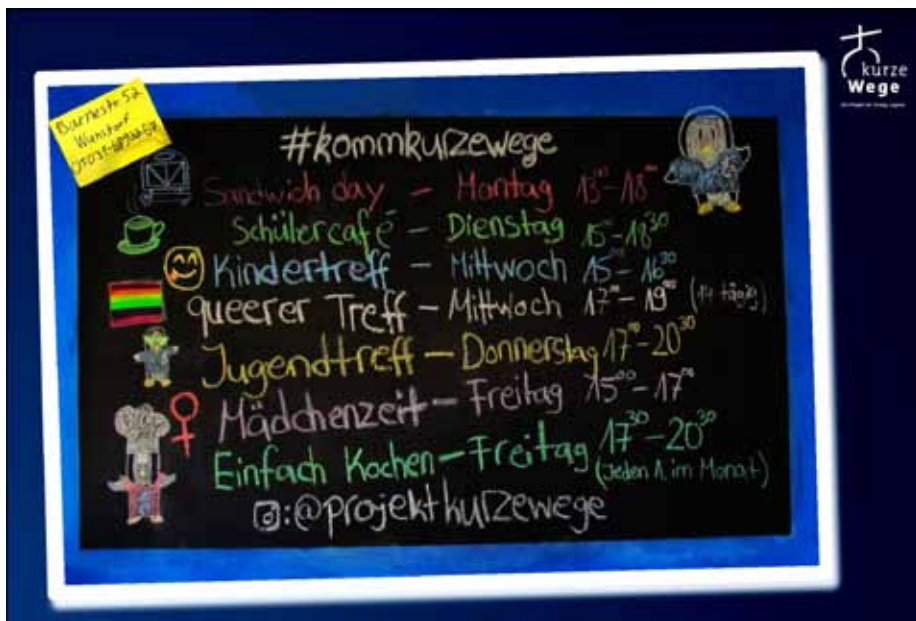 kurze
Wege
Barnestr. 52
Wunstorf
#kommkurzewege
Sandwich day – Montag 13⁰⁰–18⁰⁰
Schülercafé – Dienstag 15–18³⁰
Kindertreff – Mittwoch 15⁰⁰–16³⁰
queerer Treff – Mittwoch 17⁰⁰–19⁰⁰ (14 tägig)
Jugendtreff – Donnerstag 17⁰⁰–20³⁰
Mädchenzeit – Freitag 15⁰⁰–17⁰⁰
Einfach Kochen – Freitag 17³⁰–20³⁰
(Jeden 1. im Monat)
:@projektkurzewege